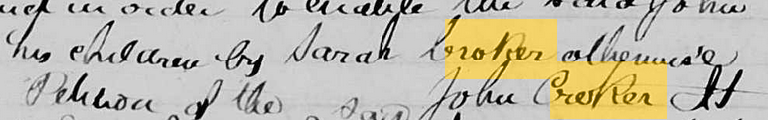 in order to enable the said John
his children by Sarah Croker otherwise
Petition of the said John Croker It